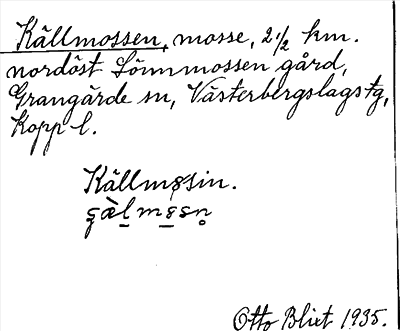 Källmossen, mosse, 2 1/2 km.
nordöst Lönnmossen gård,
Grangärde sn, Västerbergslags tg,
Kopp l.
Källmosin.
Otto Blixt 1935.